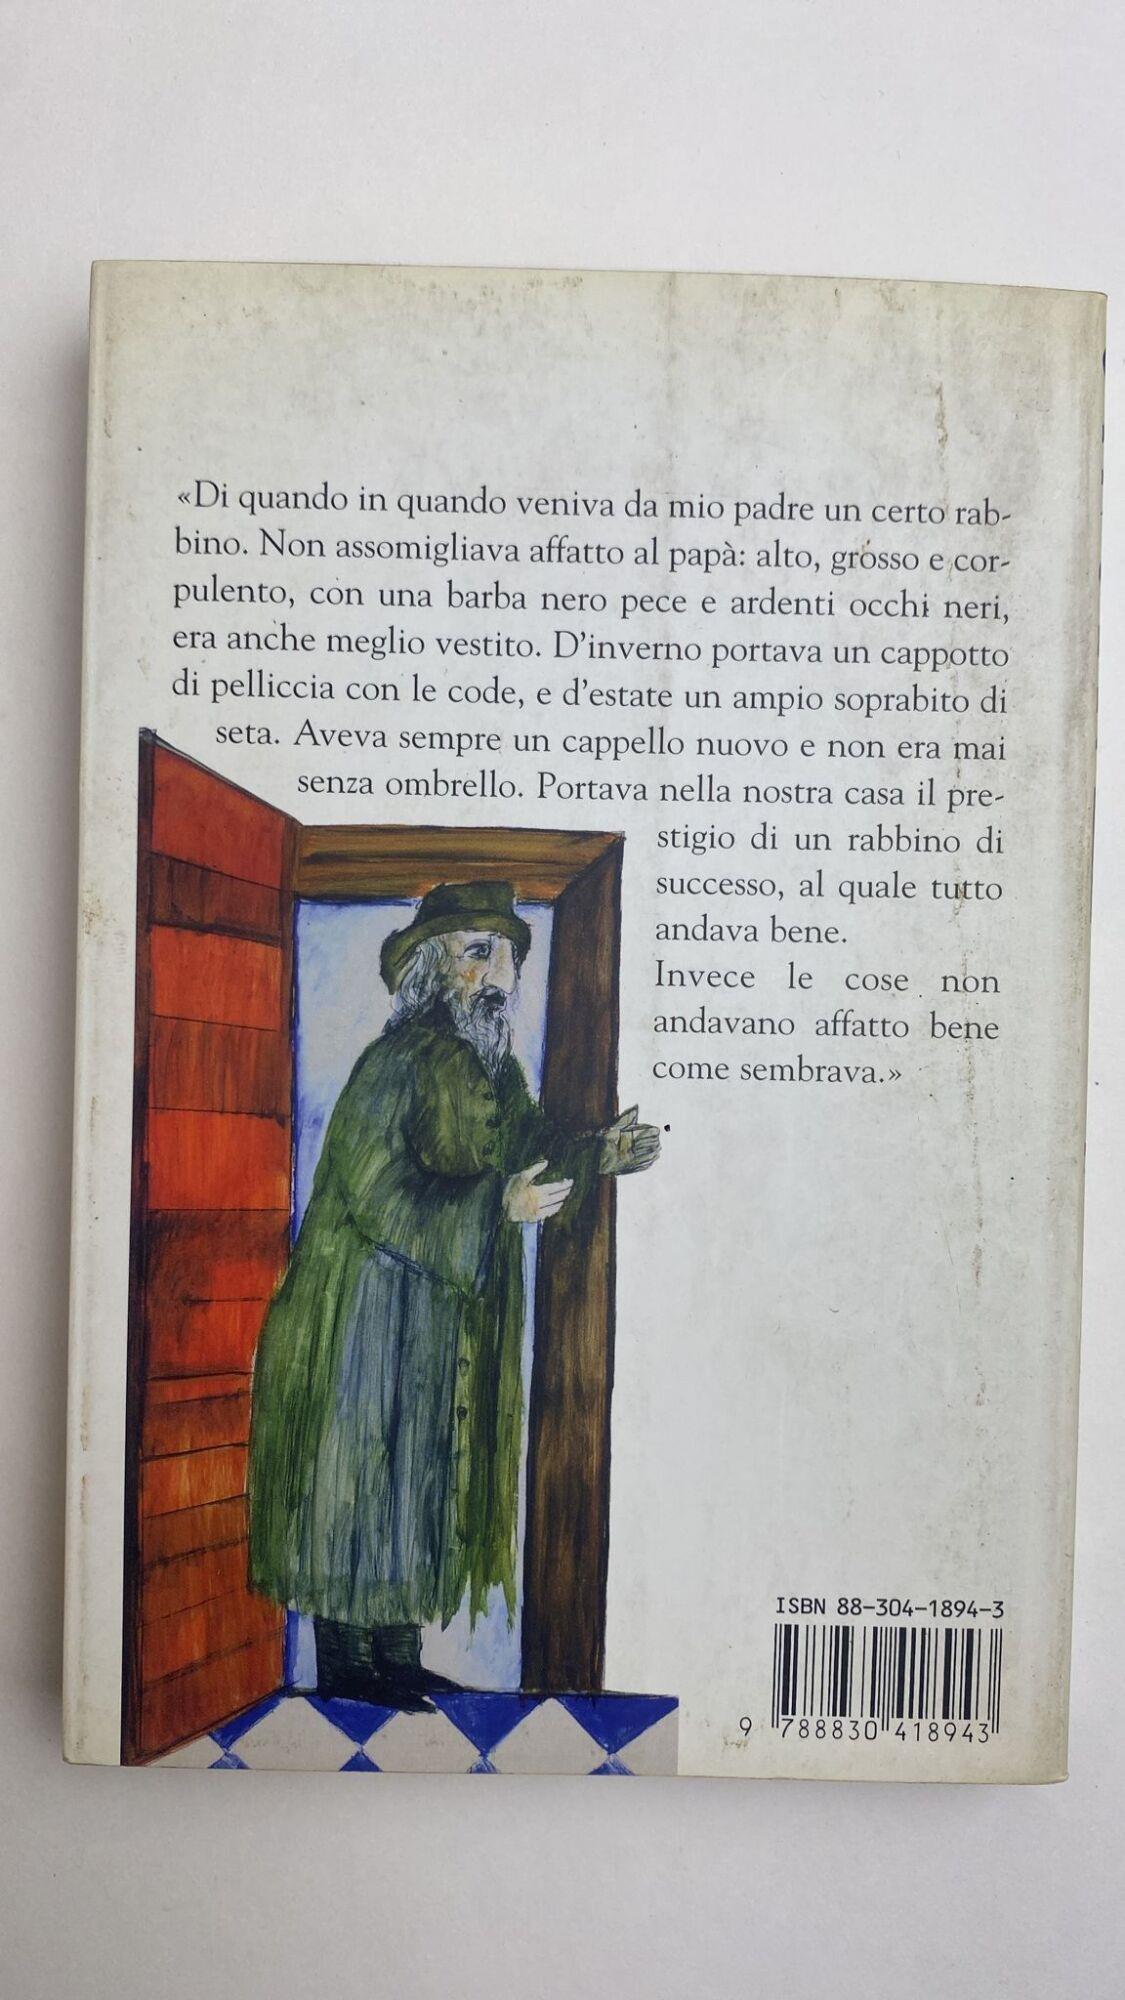 «Di quando in quando veniva da mio padre un certo rab-
bino. Non assomigliava affatto al papà: alto, grosso e cor-
pulento, con una barba nero pece e ardenti occhi neri,
era anche meglio vestito. D'inverno portava un cappotto
di pelliccia con le code, e d'estate un ampio soprabito di
seta. Aveva sempre un cappello nuovo e non era mai
senza ombrello. Portava nella nostra casa il pre-
stigio di un rabbino di
successo, al quale tutto
andava bene.
Invece le cose non
andavano affatto bene
come sembrava.»
ISBN 88-304-1894-3
9 788830 418943